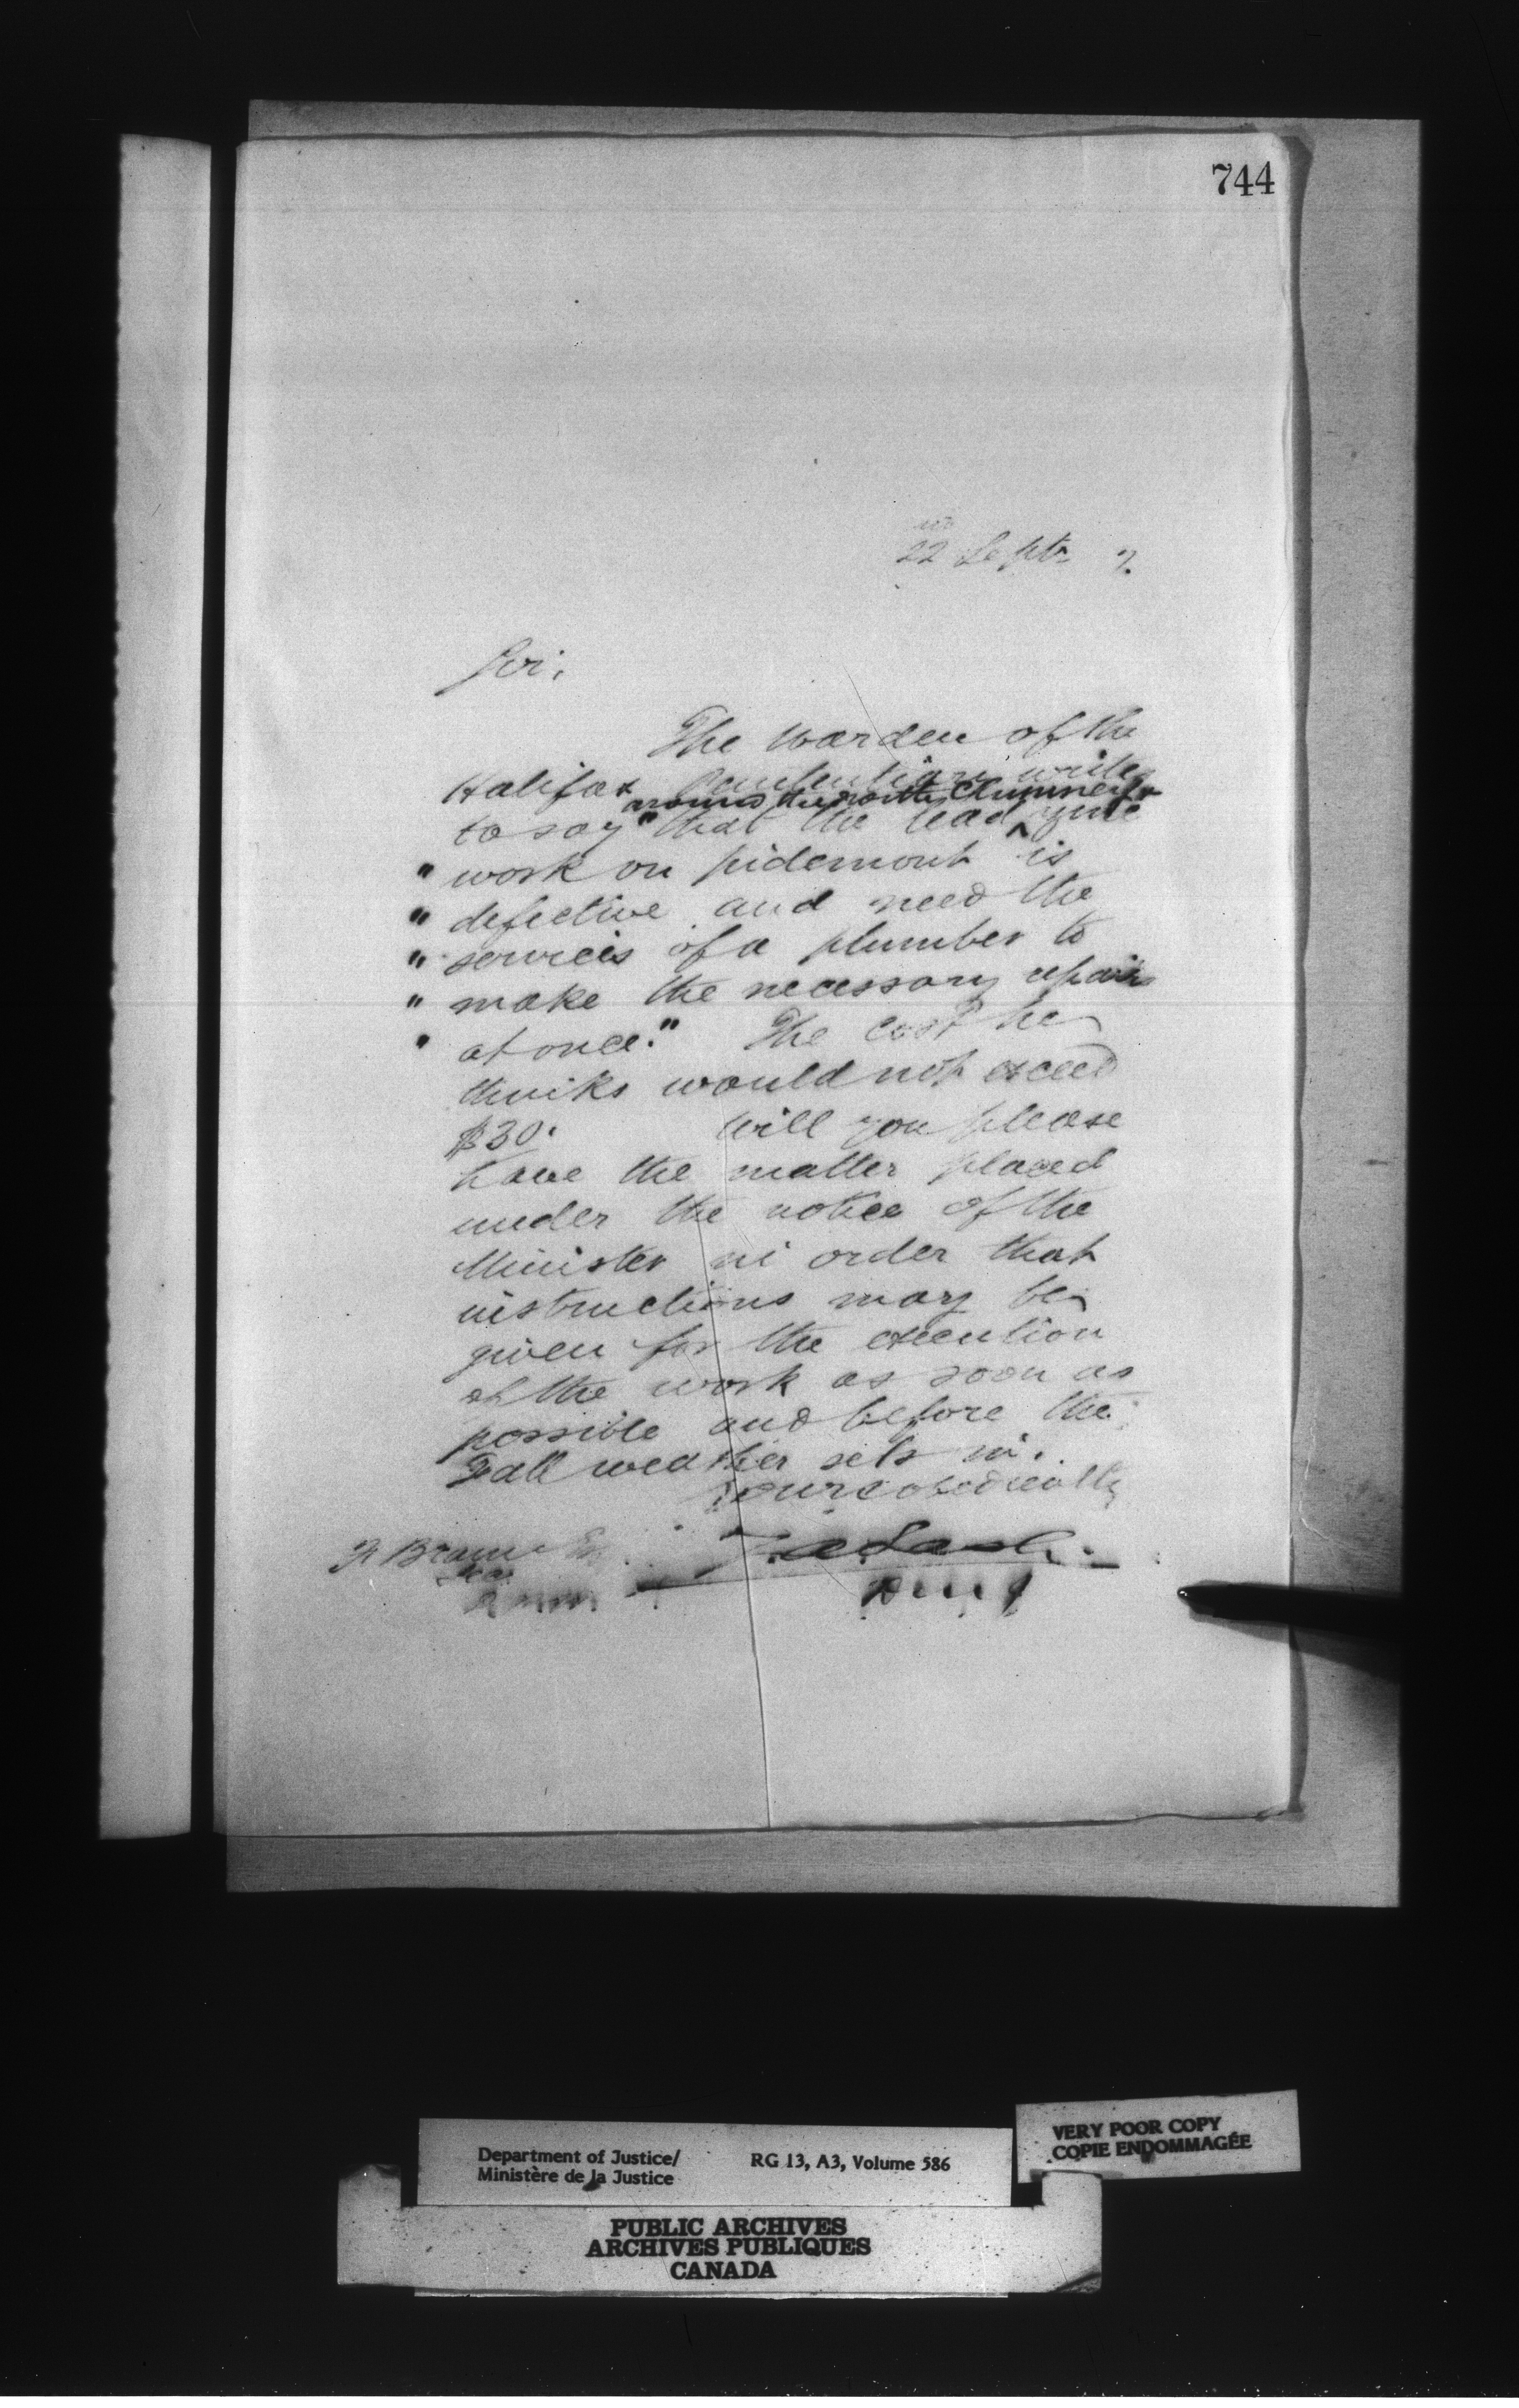 744
22 Septr 7.
Sir,
The Warden of the
Halifax Penitentiary writes
around the north Chimney &
to say "that the lead ^ zinc
" work on pidemont is
" defective and need the
" services of a plumber to
" make the necessary repairs
" at once." The cost he
thinks would not exceed
$30. Will you please
have the matter placed
under the notice of the
Minister in order that
instructions may be
given for the execution
of the work as soon as
possible and before the
Fall weather sets in.
Yours obediently
F Braun
Z. A. Lash
Department of Justice/
Ministère de la Justice
RG 13, A3, Volume 586
VERY POOR COPY
COPIE ENDOMMAGÉE
PUBLIC ARCHIVES
ARCHIVES PUBLIQUES
CANADA